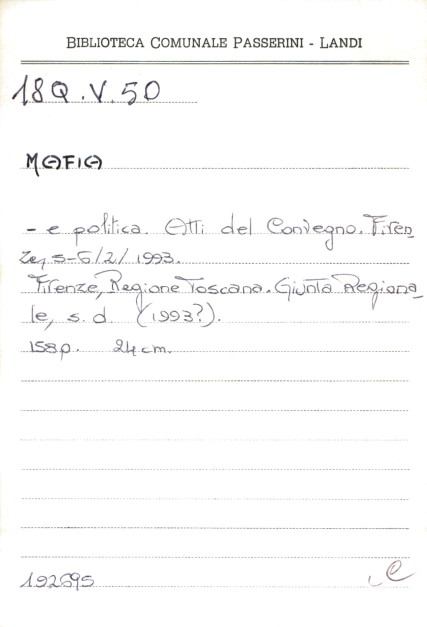 BIBLIOTECA COMUNALE PASSERINI - LANDI
18Q.V.50
MAFIA
- e politica. Atti del Convegno. Firen
ze, 5-6/2/1993.
Firenze, Regione Toscana. Giunta Regiona
le, s.d. (1993?).
158p. 24cm.
192695